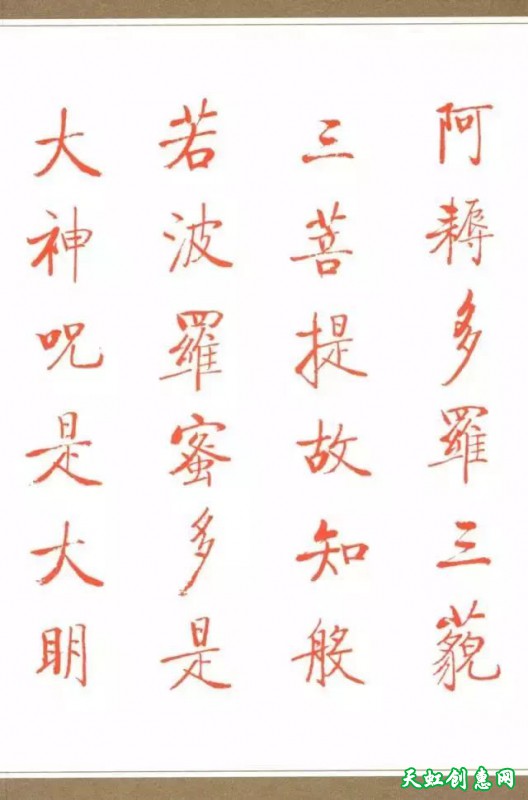 阿耨多羅三藐
三菩提故知般
若波羅蜜多是
大神咒是大明
天虹创惠网